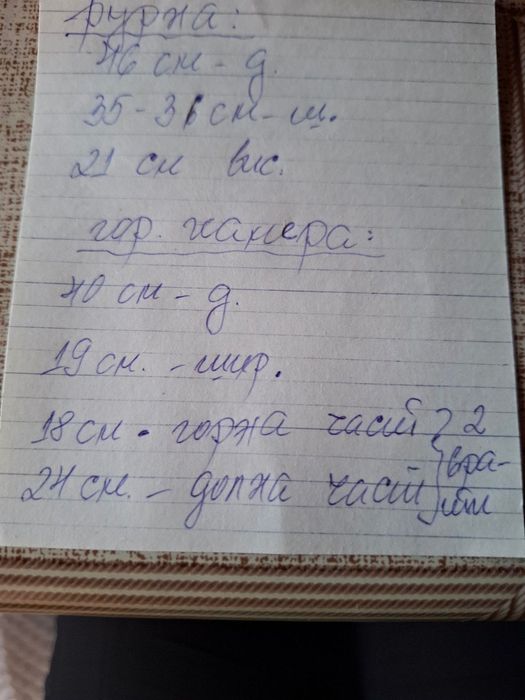 фурна:
46 см - д.
35-36 см - ш.
21 см вис.
гор. камера:
40 см - д.
19 см. - шир.
18 см - горна част } 2
24 см. - долна част } вра-
ти